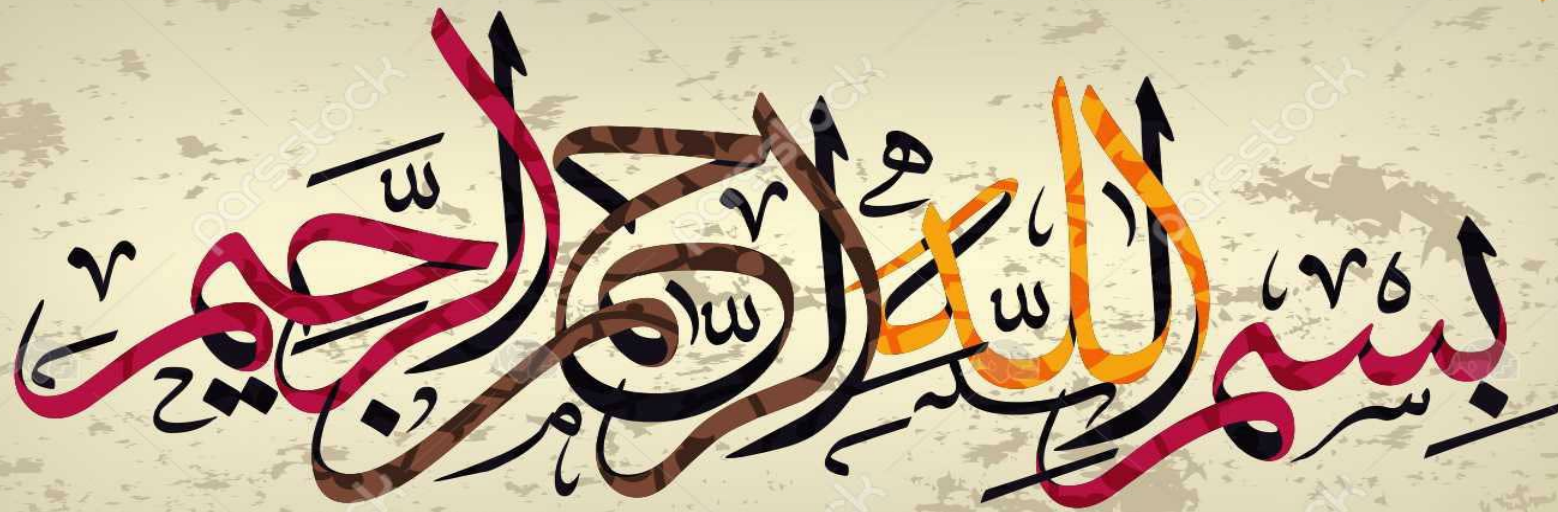 بِسْمِ اللَّهِ الرَّحْمَٰنِ الرَّحِيمِ
parsstock